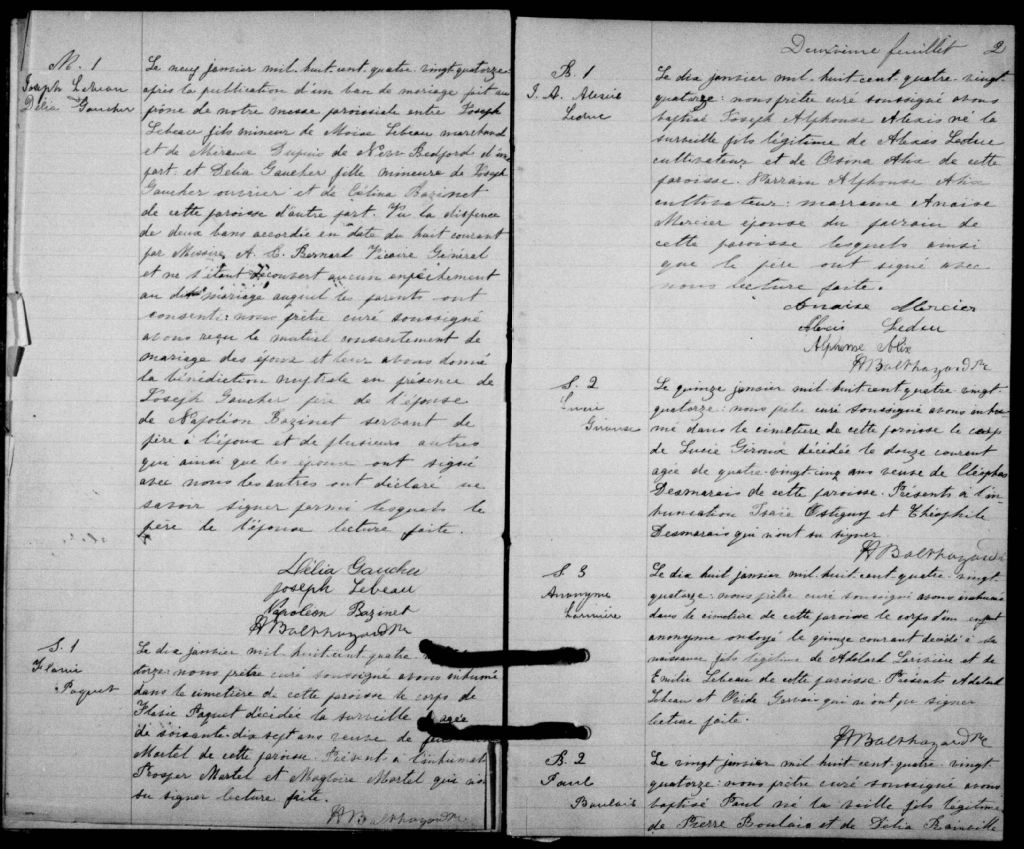 M. 1
Joseph Lebeau
Délia Gaucher
Le neuf janvier mil huit-cent-quatre-vingt quatorze
après la publication d'un ban de mariage fait au
prône de notre messe paroissiale entre Joseph
Lebeau fils mineur de Moise Lebeau marchand
et de Dupuis de New Bedford d'une
part, et Délia Gaucher fille mineure de Joseph
Gaucher ouvrier et de Célina Bazinet
de cette paroisse d'autre part. Vu la dispence
de deux bans accordée en date du huit courant
par Messire A. C. Bernard Vicaire General
et ne s'étant découvert aucun empêchement
au dit mariage auquel les parents ont
consenti: nous prêtre curé soussigné
avons reçu le mutuel consentement de
mariage des époux et leur avons donné
la bénédiction nuptiale en présence de
Joseph Gaucher père de l'épouse
de Napoléon Bazinet servant de
père à l'époux et de plusieurs autres
qui ainsi que les époux ont signé
avec nous les autres ont déclaré ne
savoir signer parmi lesquels le
père de l'épouse lecture faite.
Délia Gaucher
Joseph Lebeau
Napoléon Bazinet
Balthazard Ptre
S. 1
Flavie
Paquet
Le dix janvier mil huit cent quatre
torze: nous prêtre curé soussigné avons inhumé
dans le cimetière de cette paroisse le corps de
Flavie Paquet décédée la surveille agée
de soixante-dix sept ans veuve de
Martel de cette paroisse. Présent à l'inhumat
Prosper Martel et Magloire Martel qui n'ont
su signer lecture faite.
Balthazard Ptre
Deuxième feuillet 2
B. 1
J. A. Alexis
Leduc
Le dix janvier mil huit-cent-quatre-vingt
quatorze: nous prêtre curé soussigné avons
baptisé Joseph Alphonse Alexis né la
surveille fils légitime de Alexis Leduc
cultivateur et de Osina Alix de cette
paroisse. Parrain Alphonse Alix
cultivateur: marraine Anaise
Mercier épouse du parrain de
cette paroisse lesquels ainsi
que le père ont signé avec
nous lecture faite.
Anaise Mercier
Alexis Leduc
Alphonse Alix
Balthazard Ptre
S. 2
Lucie
Giroux
Le quinze janvier mil-huit-cent-quatre-vingt
quatorze: nous prêtre curé soussigné avons inhu
mé dans le cimetière de cette paroisse le corps
de Lucie Giroux décédée le douze courant
agée de quatre-vingt-cinq ans veuve de Cléophas
Desmarais de cette paroisse. Présents à l'in-
humation Isaïe Ostigny et Théophile
Desmarais qui n'ont su signer
Balthazard
S. 3
Anonyme
Larivière
Le dix huit janvier mil-huit-cent-quatre-vingt
quatorze: nous prêtre curé soussigné avons inhumé
dans le cimetière de cette paroisse le corps d'un enfant
anonyme ondoyé le quinze courant décédé à sa
naissance fils légitime de Adelard Larivière et de
Emilie Lebeau de cette paroisse. Présents Adelard
Lebeau et Gervais qui n'ont pu signer
lecture faite.
Balthazard Ptre
B. 2
Paul
Boulais
Le vingt janvier mil huit-cent-quatre-vingt
quatorze: nous prêtre curé soussigné avons
baptisé Paul né la veille fils légitime
de Pierre Boulais et de Délia Rainville